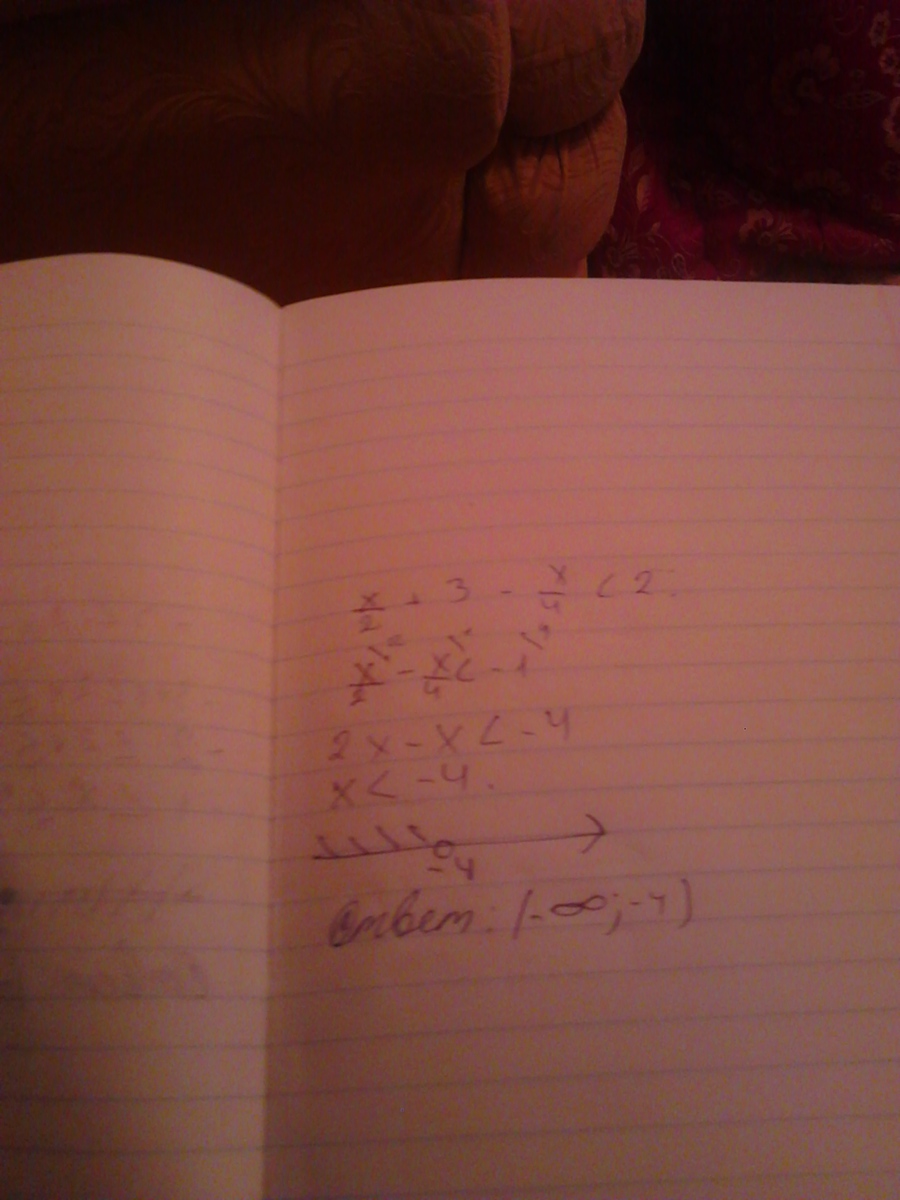 x/2 + 3 - x/4 < 2.
x/2 - x/4 < -1
2x - x < -4
x < -4.
-4
Ответ: (-∞; -4)